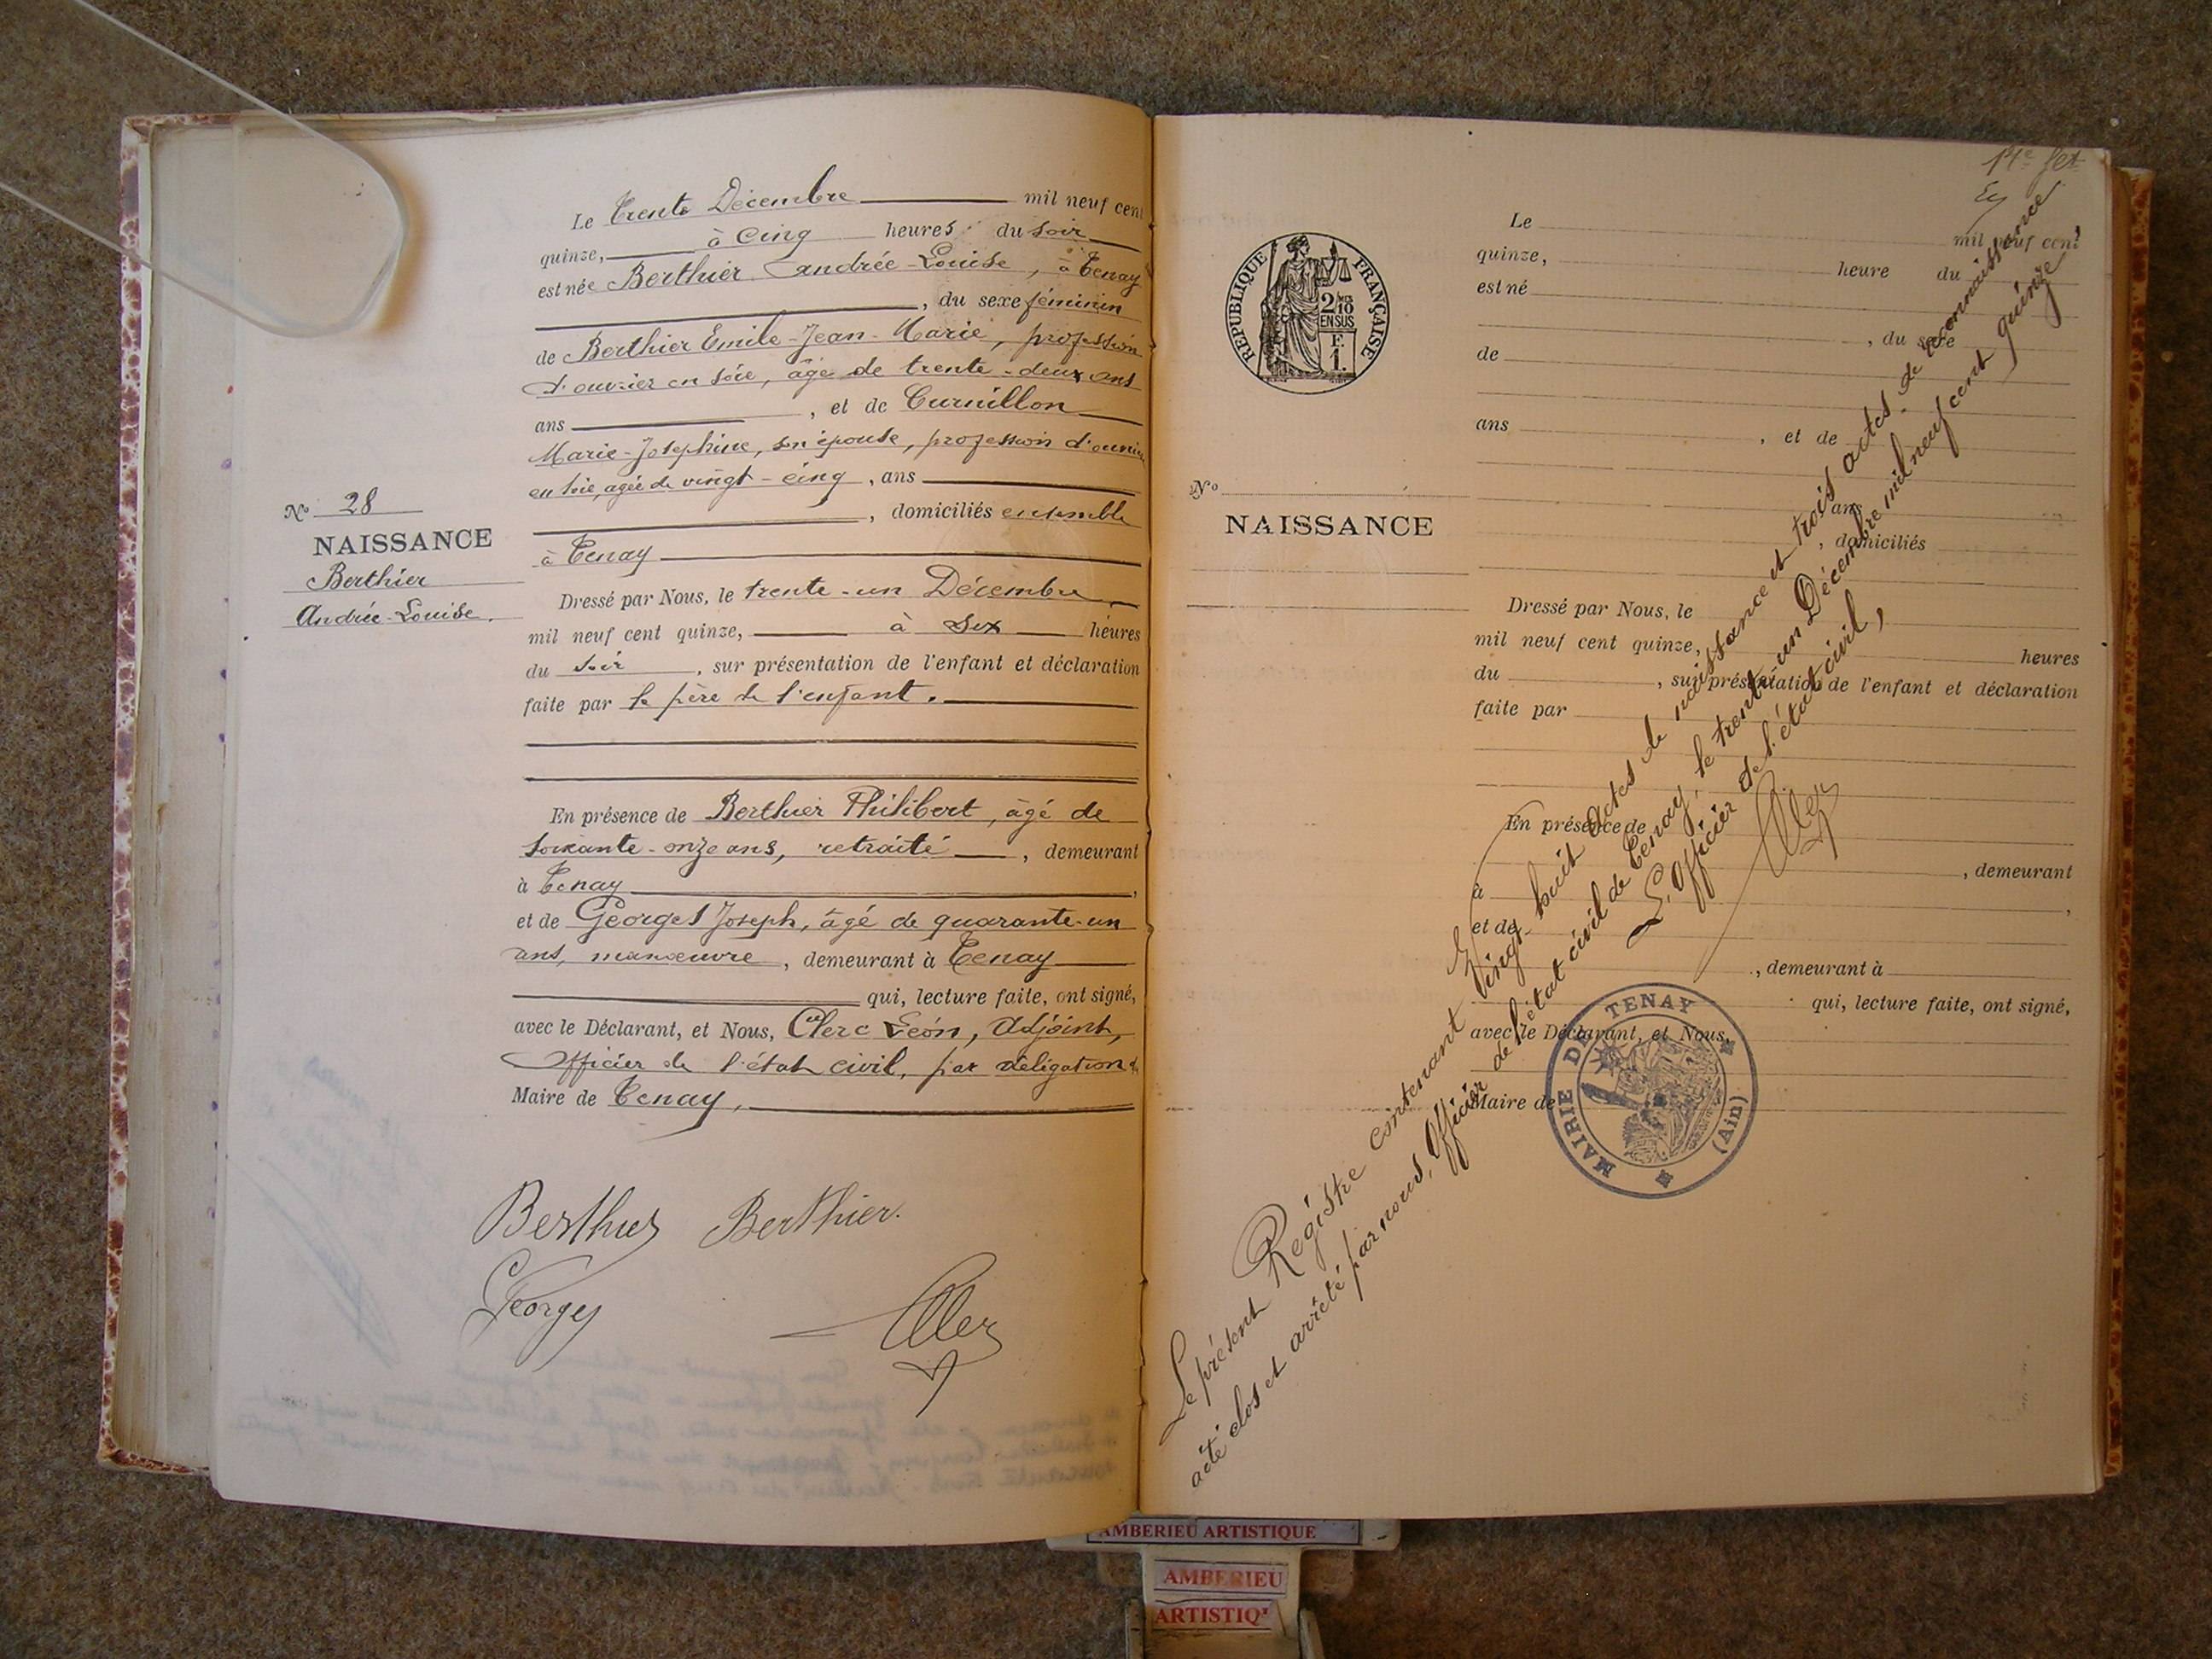 Le trente Décembre mil neuf cent
quinze, à cinq heures du soir
est née Berthier Andrée-Louise, à Tenay
, du sexe féminin
de Berthier Emile-Jean-Marie, profession
d'ouvrier en soie, âgé de trente-deux ans
ans , et de Curnillon
Marie-Josephine, son épouse, profession d'ouvrière
en soie, agée de vingt-cinq , ans
, domiciliés ensemble
à Tenay
Dressé par Nous, le trente-un Décembre
mil neuf cent quinze, à six heures
du soir , sur présentation de l'enfant et déclaration
faite par le père de l'enfant.
En présence de Berthier Philibert, âgé de
soixante-onze ans, retraité , demeurant
à Tenay ,
et de Georges Joseph, âgé de quarante-un
ans, manœuvre , demeurant à Tenay
qui, lecture faite, ont signé,
avec le Déclarant, et Nous, Clerc Léon, Adjoint,
Officier de l'état civil, par délégation du
Maire de Tenay,
No 28
NAISSANCE
Berthier
Andrée-Louise.
Berthier Berthier.
Georges
Clerc
14e fet
REPUBLIQUE FRANÇAISE
2/10
EN SUS
F.
1.
No
NAISSANCE
Le mil neuf cent
quinze, heure du
est né
, du sexe
de
ans , et de
, ans
, domiciliés
Dressé par Nous, le
mil neuf cent quinze, heures
du , sur présentation de l'enfant et déclaration
faite par
En présence de
, demeurant
à ,
et de
, demeurant à
qui, lecture faite, ont signé,
avec le Déclarant, et Nous,
Maire de
Le présent Régistre contenant vingt-huit actes de naissance et trois actes de reconnaissance
a été clos et arrêté par nous, Officier de l'état civil de Tenay, le trente-un Décembre mil neuf cent quinze
L'Officier de l'état civil,
Clerc
MAIRIE DE TENAY (Ain)
AMBERIEU ARTISTIQUE
AMBERIEU
ARTISTIQ